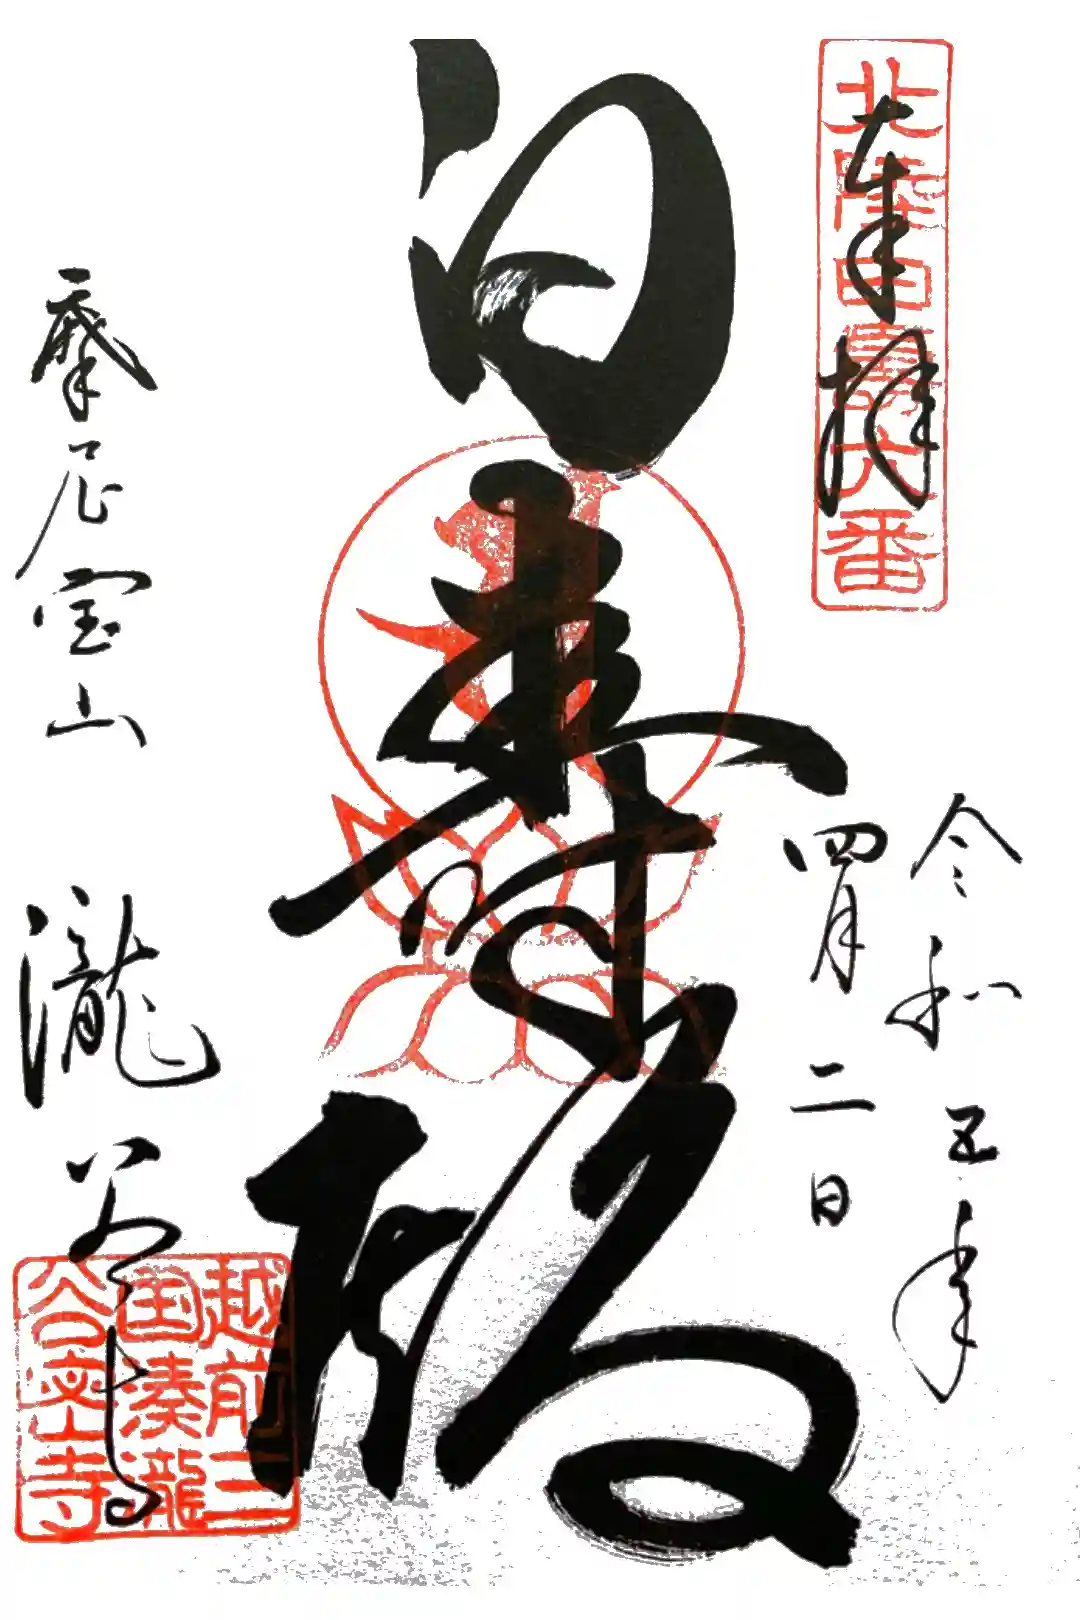 奉拝
北陸
番
白寿殿
令和五年
四月二日
摩尼宝山
瀧谷寺
越前三
国湊瀧
谷密寺